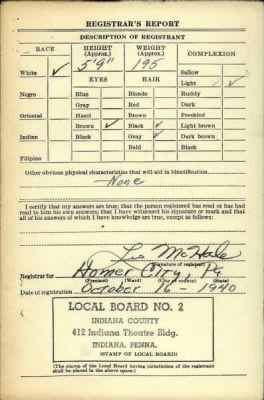 REGISTRAR'S REPORT
DESCRIPTION OF REGISTRANT
RACE HEIGHT (Approx.) WEIGHT (Approx.) COMPLEXION
5' 9" 195 Sallow
White ✓ Light ✓
EYES HAIR
Ruddy
Negro Blue Blonde Dark
Gray Red Freckled
Oriental Hazel Brown Light brown
Brown ✓ Black ✓ Dark brown
Indian Black Gray ✓ Black
Bald
Filipino
Other obvious physical characteristics that will aid in identification
None
I certify that my answers are true; that the person registered has read or has had
read to him his own answers; that I have witnessed his signature or mark and that
all of his answers of which I have knowledge are true, except as follows:
McHale
(Signature of registrar)
Registrar for Homer City, Pa.
(Precinct) (Ward) (City or county) (State)
Date of registration October 16 - 1940
LOCAL BOARD NO. 2
INDIANA COUNTY
412 Indiana Theatre Bldg.
INDIANA, PENNA.
(STAMP OF LOCAL BOARD)
(The stamp of the Local Board having jurisdiction of the registrant
shall be placed in the above space.)